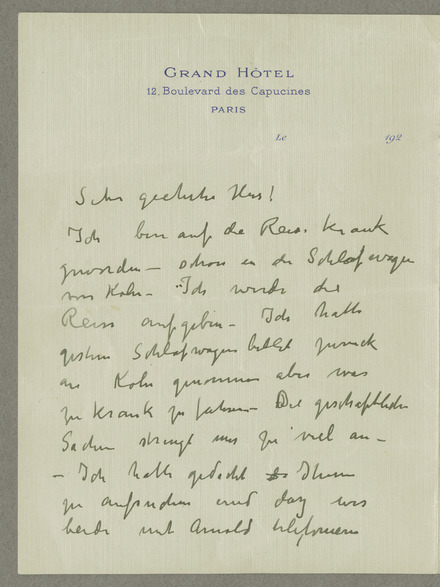 GRAND HÔTEL
12, Boulevard des Capucines
PARIS
Le 192
Sehr geehrter Herr!
Ich bin auf der Reise krank
geworden – schon in der Schlafwagen
von Köln – Ich werde die
Reise aufgeben – Ich hatte
gestern Schlafwagen billet zurück
an Köln genommen aber was
zu krank zu fahren – Die geschäftlichen
Sachen strengt uns zu viel an –
– Ich hatte gedacht Ihnen
zu aufsuchen und dass wir
beide mit Arnold telefonieren